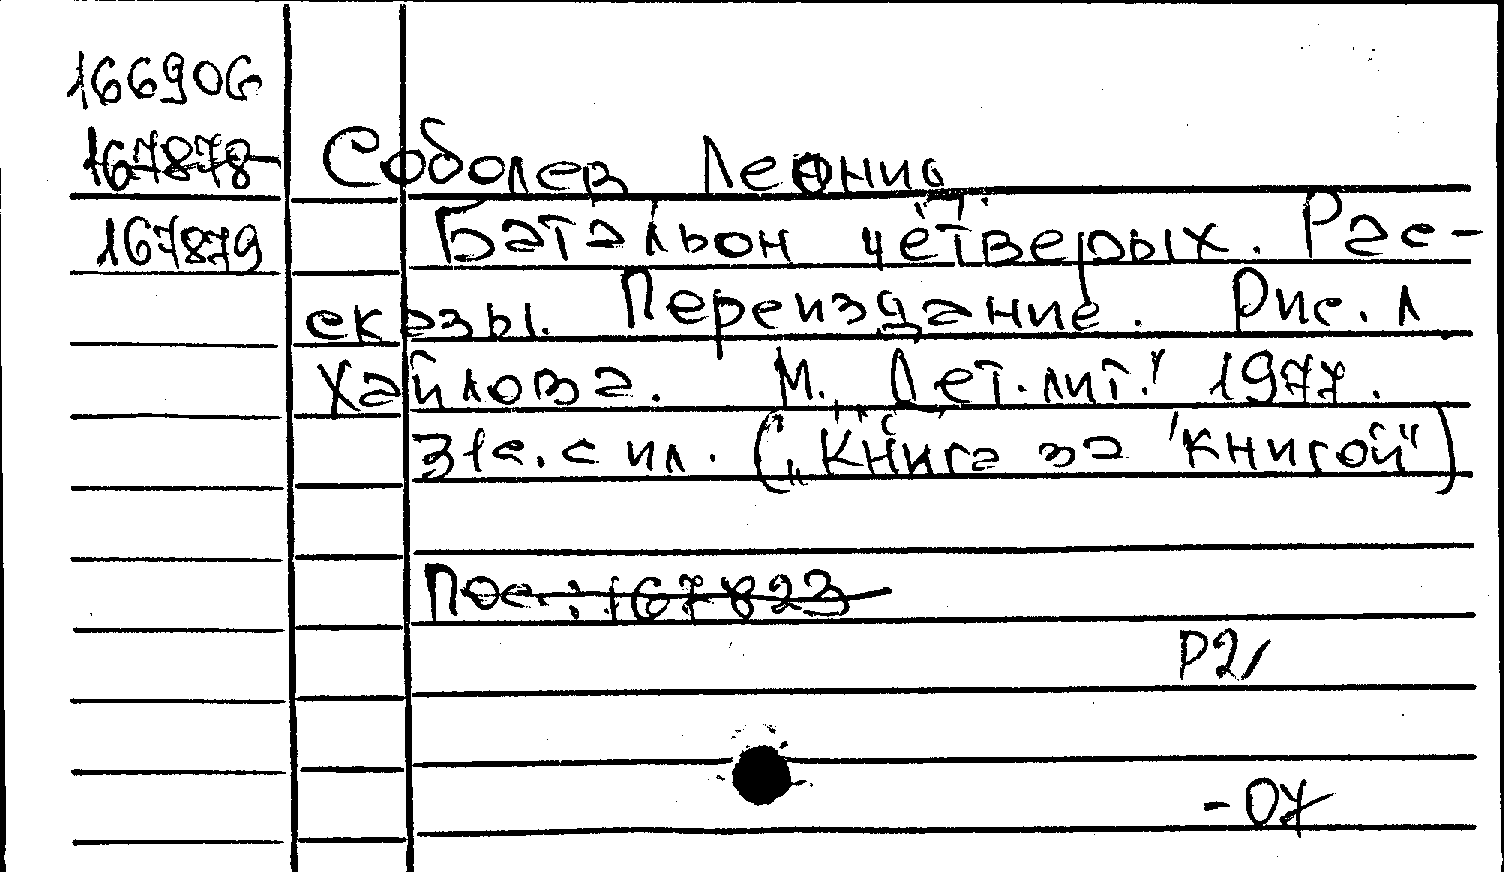 166906
167878 Соболев Леонид
167879 Батальон четверых. Рас-
сказы. Переиздание. Рис. Л
Хайлова. М. Дет. лит. 1977.
31с. с ил. („Книга за книгой")
Пос.: 167823
Р2
-07